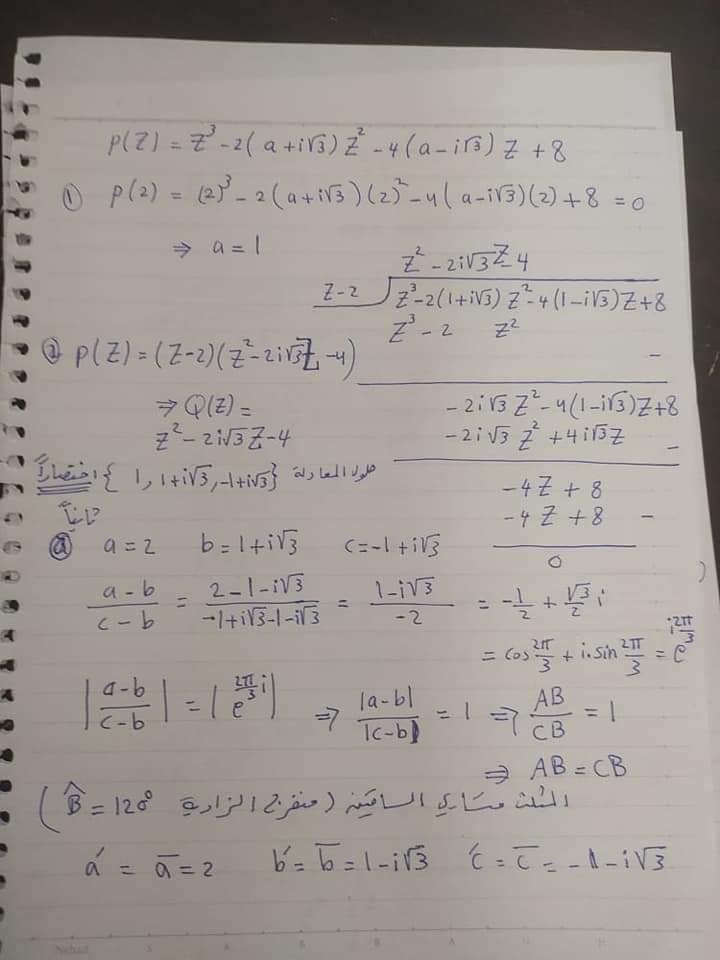 P(Z) = Z³ - 2(a+i√3) Z² - 4(a-i√3) Z + 8
① P(2) = (2)³ - 2(a+i√3)(2)² - 4(a-i√3)(2) + 8 = 0
⇒ a = 1
Z² - 2i√3 Z - 4
Z-2
Z³ - 2(1+i√3) Z² - 4(1-i√3) Z + 8
Z³ - 2 Z²
-
② P(Z) = (Z-2)(Z² - 2i√3 Z - 4)
-2i√3 Z² - 4(1-i√3) Z + 8
-2i√3 Z² + 4i√3 Z
-
⇒ Q(Z) =
Z² - 2i√3 Z - 4
-4Z + 8
-4Z + 8 -
0
حلول المعادلة {1, 1+i√3, -1+i√3} اختصاراً
ثانياً
a = 2 b = 1+i√3 c = -1+i√3
(a-b)/(c-b) = (2-1-i√3)/(-1+i√3-1-i√3) = (1-i√3)/(-2) = -1/2 + (√3/2) i
= cos 2π/3 + i.sin 2π/3 = e^(i2π/3)
|(a-b)/(c-b)| = |e^(2π/3 i)| ⇒ |a-b|/|c-b| = 1 ⇒ AB/CB = 1
⇒ AB = CB
المثلث متساوي الساقين (منفرج الزاوية B̂ = 120°)
a′ = a̅ = 2 b′ = b̅ = 1-i√3 c′ = c̅ = -1-i√3